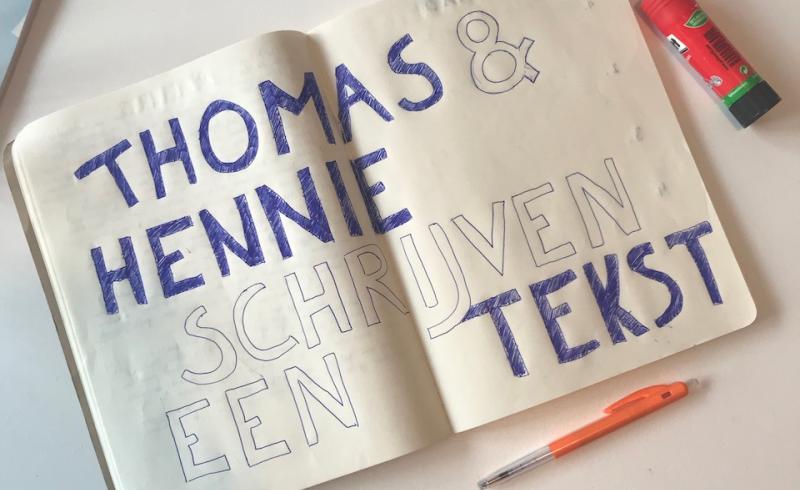 THOMAS &
HENNIE
SCHRIJVEN
EEN TEKST